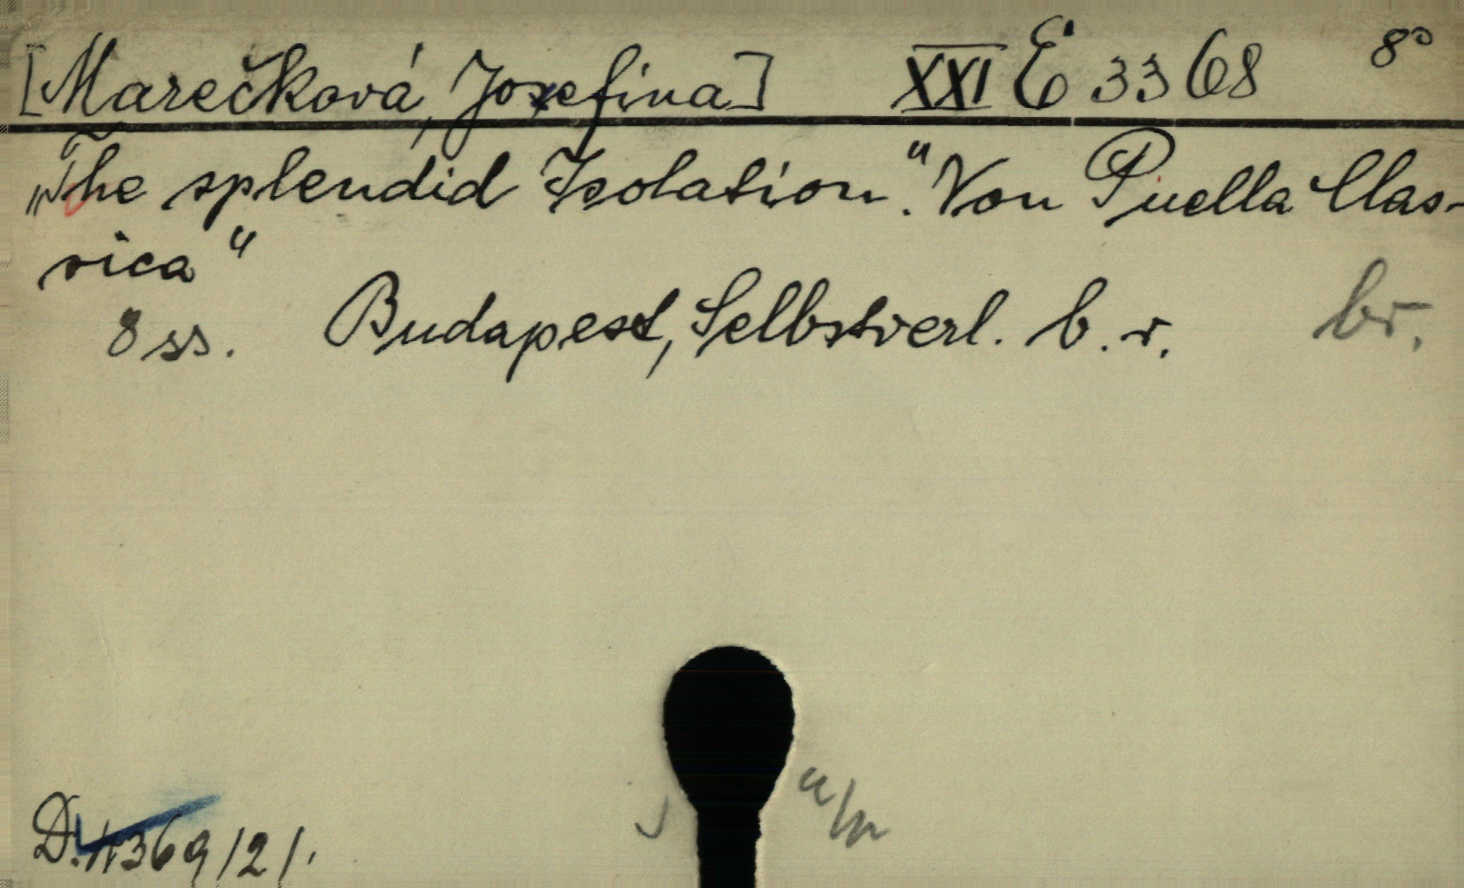 [Marečková, Josefina] XXI E 3368 8°
„The splendid Isolation.“ Von Puella Clas-
sica“
8 ss. Budapest, Selbstverl. b. r. br.
D. 4369/21.